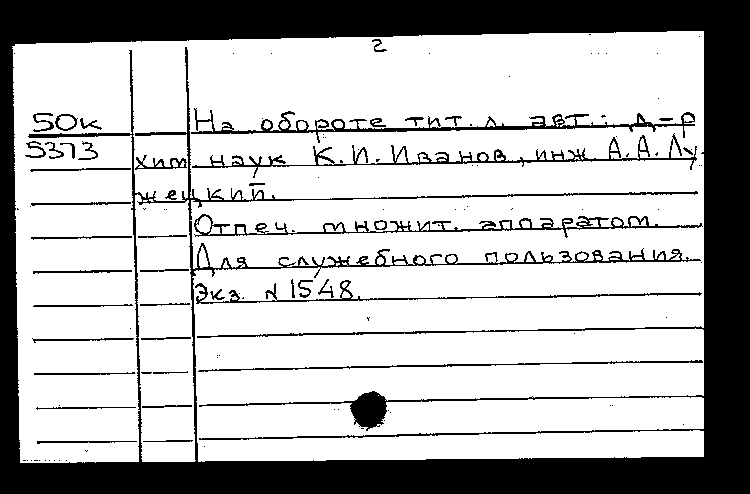 2
50к На обороте тит. л. авт.: д-р
5373 хим. наук К.И. Иванов, инж. А.А. Лу-
жецкий.
Отпеч. множит. аппаратом.
Для служебного пользования.
Экз. N 1548.